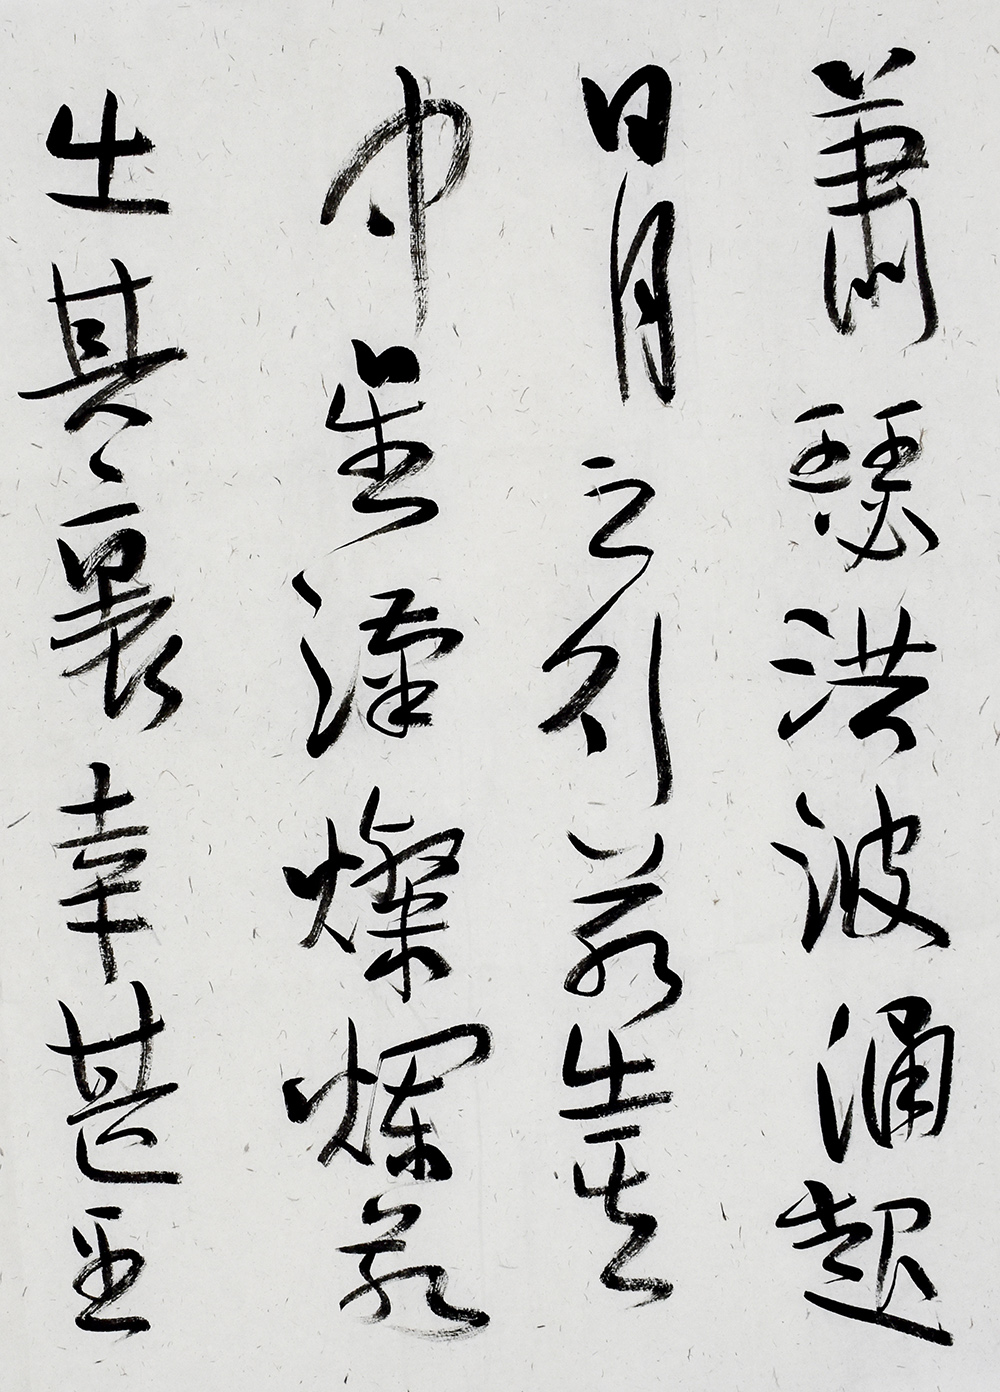 蕭瑟洪波涌起
日月之行若出其
中星漢燦爛若
出其裏幸甚至